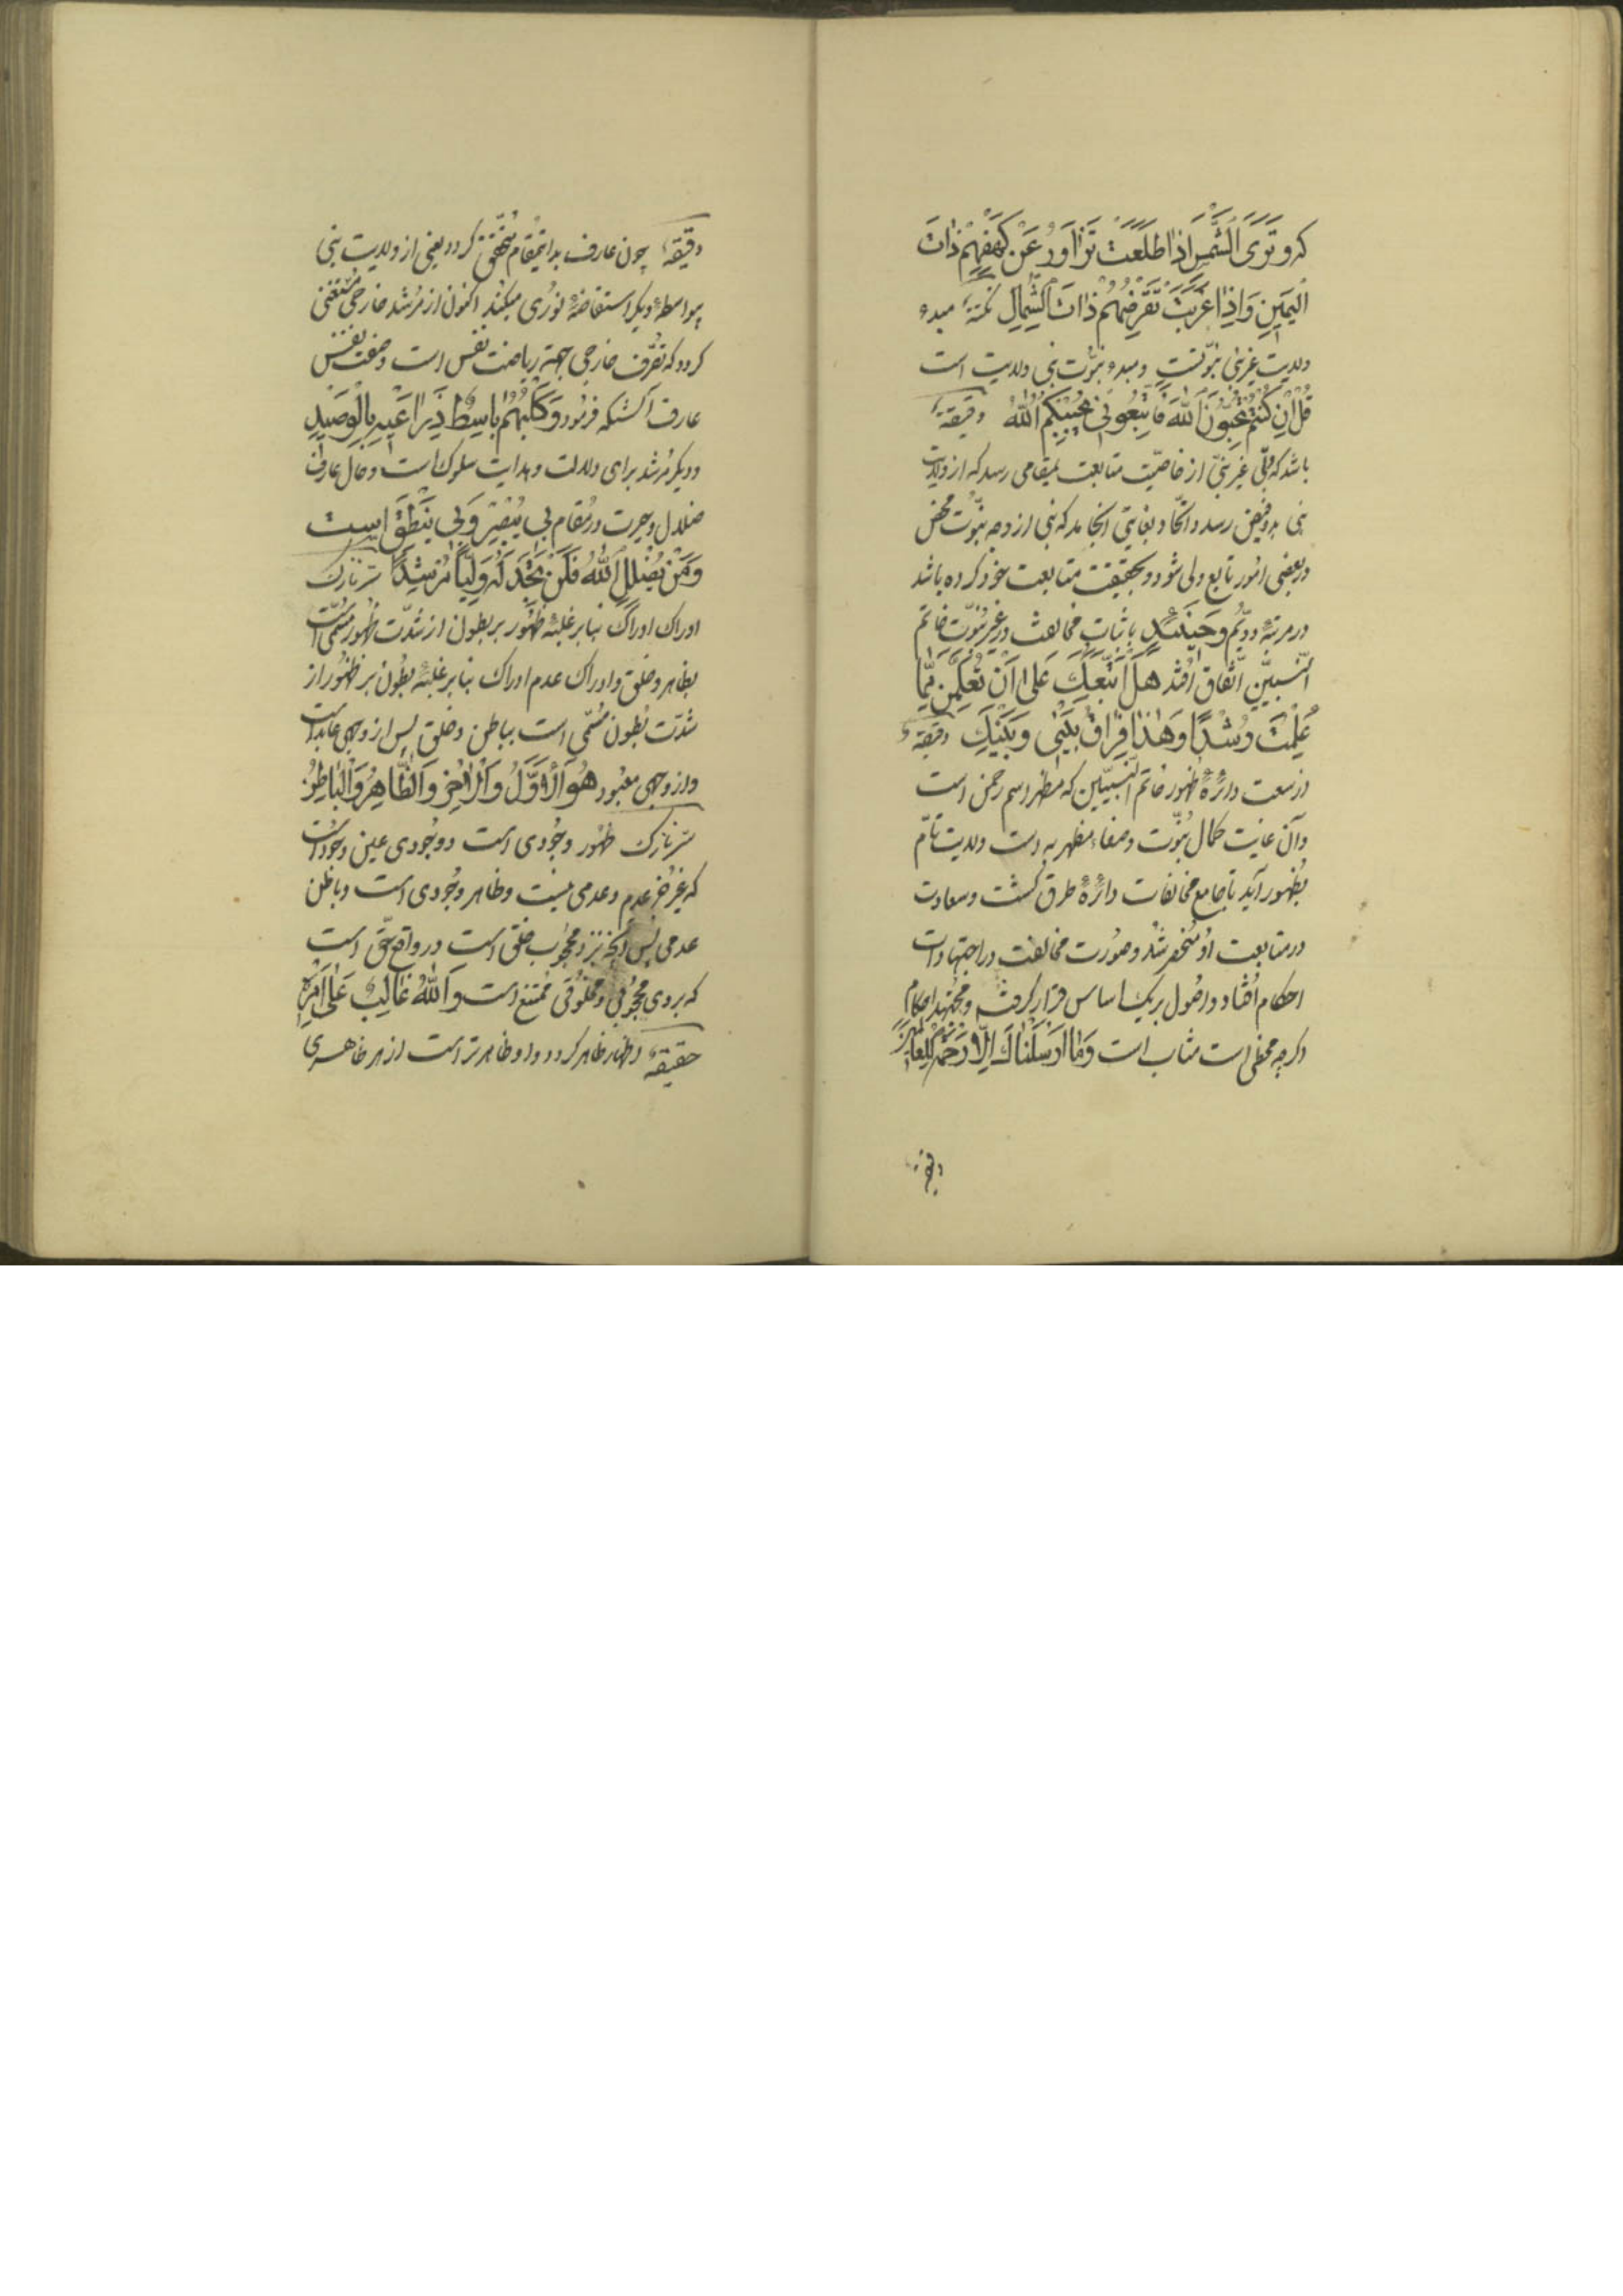 که وَتَرَى الشَّمْسَ اِذٰا طَلَعَتْ تَزٰاوَرُ عَنْ كَهْفِهِمْ ذٰاتَ
الْيَمِينِ وَاِذٰا غَرَبَتْ تَقْرِضُهُمْ ذٰاتَ الشِّمٰالِ نکتهٌ مبدء
ولایت غیر نبی نبوّتست و مبدء نبوّت نبی ولایت است
قُلْ اِنْ كُنْتُمْ تُحِبُّونَ اللّٰهَ فَاتَّبِعُونِي يُحْبِبْكُمُ اللّٰهُ دقیقهٌ
باشد که ولیّ غیر نبیّ از خاصیّت متابعت بمقامی رسد که از ولایت
نبی بدو فیض رسد و اتّحاد بغایتی انجامد که نبی از وجه نبوّت محض
در بعضی امور تابع ولی شود و بحقیقت متابعت خود کرده باشد
در مرتبهٔ دویّم وَحِينَئِذٍ باثبات مخالفت در غیر نبوّت خاتم
النّبیّین اتّفاق افتد هَلْ اَتَّبِعُكَ عَلىٰ اَنْ تُعَلِّمَنِ مِمّٰا
عُلِّمْتَ رُشْدًا وَهٰذٰا فِرٰاقُ بَيْنِي وَبَيْنِكَ دقیقهٌ
از سعت دائرهٔ ظهور خاتم النّبیّین که مظهر اسم رحمن است
وآن غایت کمال نبوّت و صفاء مظهریه است ولایت تامّ
بظهور آید تا جامع مخالفات دائرهٔ طرق گشت و سعادت
در متابعت او منحصر شد و صورت مخالفت در اجتهادات
احکام افتاد و اصول بر یک اساس قرار گرفت و مجتهد احکام
اگرچه مخطی است مثاب است وَمٰا اَرْسَلْنٰاكَ اِلّٰا رَحْمَةً لِلْعٰالَمِينَ
دقیقهٌ
دقیقهٌ چون عارف بدانمقام متحقّق گردد یعنی از ولایت نبی
بیواسطهٔ دیگر استفاضهٔ نوری میکند اکنون از مرشد خارجی مستغنی
گردد که تصرّف خارجی جهة ریاضت نفس است وصفت نفس
عارف آنستکه فرمود وَكَلْبُهُمْ بٰاسِطٌ ذِرٰاعَيْهِ بِالْوَصِيدِ
ودیگر مرشد برای دلالت و هدایت سلوک است و حال عارف
ضلال و حیرت در مقام بِي يُبْصِرُ وَبِي يَنْطِقُ است
وَمَنْ يُضْلِلِ اللّٰهُ فَلَنْ تَجِدَ لَهُ وَلِيّاً مُرْشِدًا سرّ نازک
ادراک ادراک بنابر غلبهٔ ظهور بر بطون از شدّت ظهور مسمّی است
بظاهر وخلق وادراک عدم ادراک بنابر غلبهٔ بطون بر ظهور از
شدّت بطون مسمّی است بباطن وخلق پس از وجهی عابد است
واز وجهی معبود هُوَ الْاَوَّلُ وَالْاٰخِرُ وَالظّٰاهِرُ وَالْبٰاطِنُ
سرّ نازک ظهور وجودی است ووجودی عین وجود است
که غیر عدم وعدمی نیست وظاهر وجودی است وباطن
عدمی پس آنچه نزد محجوب خلق است در واقع حقّ است
که بروی محجوبی و مخلوقی ممتنع است وَاللّٰهُ غٰالِبٌ عَلىٰ اَمْرِهِ
حقیقهٌ اظهار ظاهر گردد واو ظاهرتر است از هر ظاهری